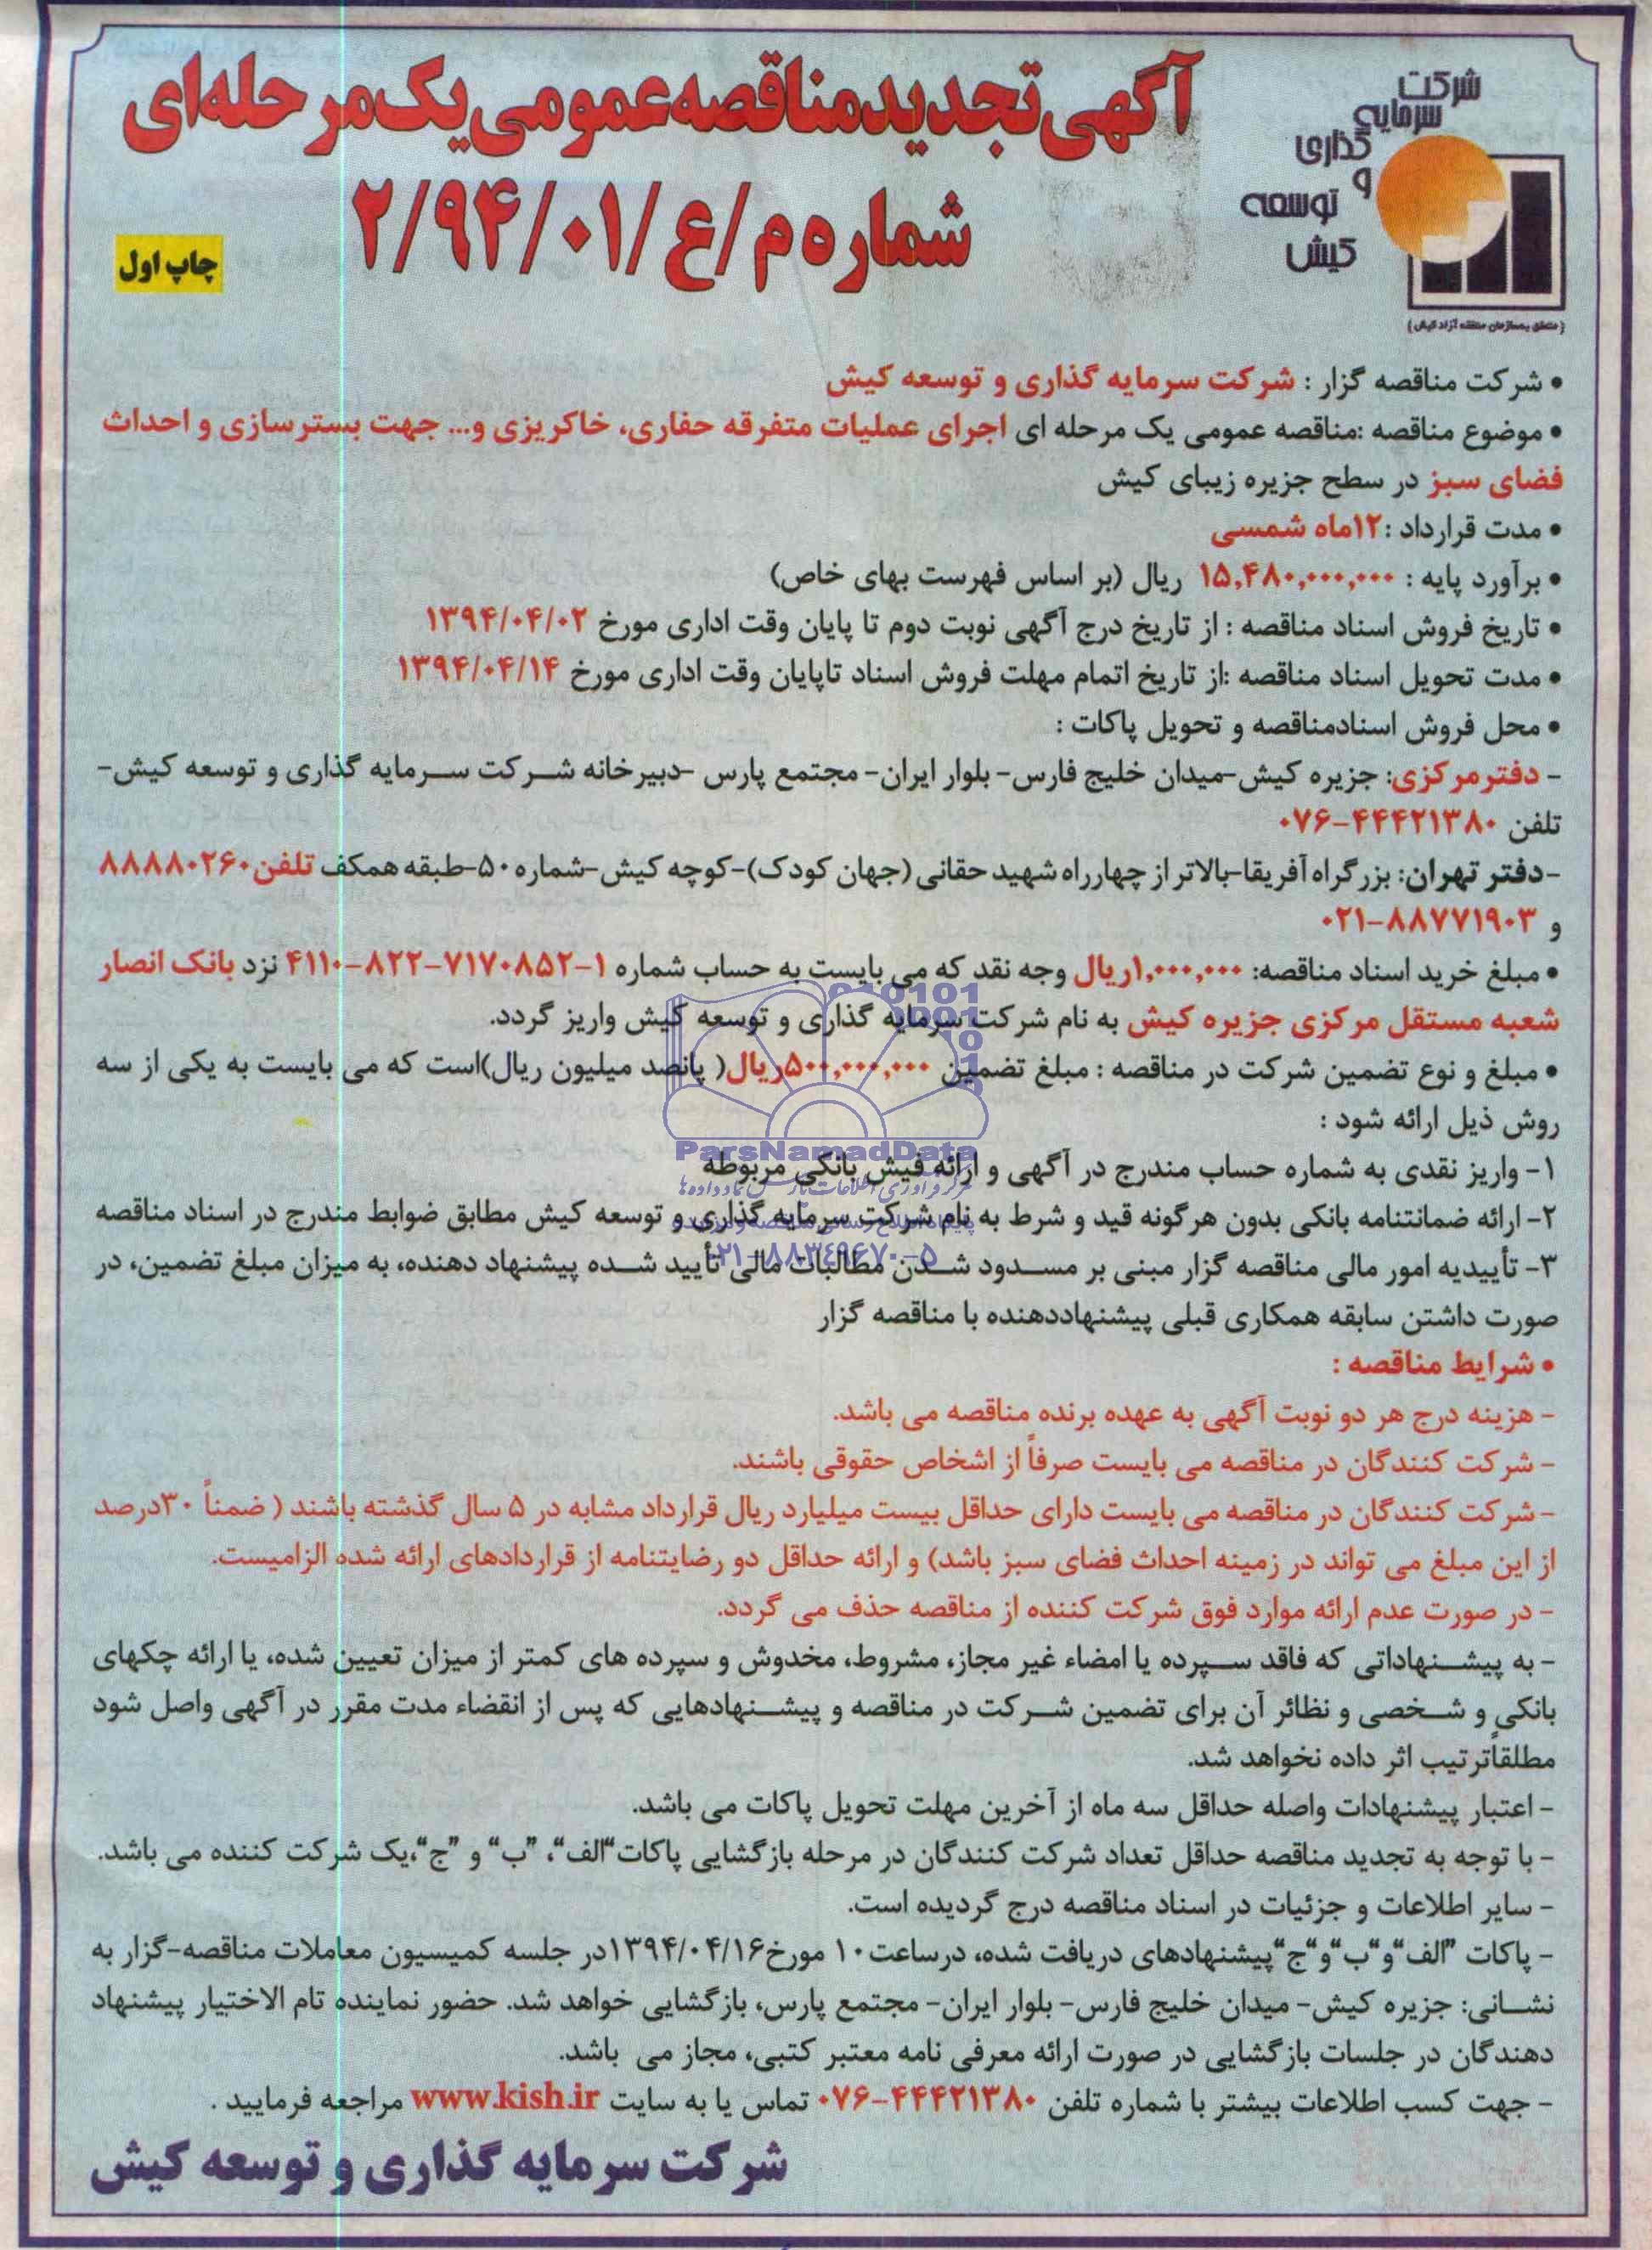 آگهی تجدید مناقصه عمومی یک مرحله‌ای
شماره م/ع/۲/۹۴/۰۱
چاپ اول
شرکت
سرمایه
گذاری
و
توسعه
کیش
(متعلق به سازمان منطقه آزاد کیش)
• شرکت مناقصه گزار : شرکت سرمایه گذاری و توسعه کیش
• موضوع مناقصه :مناقصه عمومی یک مرحله ای اجرای عملیات متفرقه حفاری، خاکریزی و... جهت بسترسازی و احداث
فضای سبز در سطح جزیره زیبای کیش
• مدت قرارداد :۱۲ماه شمسی
• برآورد پایه : ۱۵,۴۸۰,۰۰۰,۰۰۰ ریال (بر اساس فهرست بهای خاص)
• تاریخ فروش اسناد مناقصه : از تاریخ درج آگهی نوبت دوم تا پایان وقت اداری مورخ ۱۳۹۴/۰۴/۰۲
• مدت تحویل اسناد مناقصه :از تاریخ اتمام مهلت فروش اسناد تاپایان وقت اداری مورخ ۱۳۹۴/۰۴/۱۴
• محل فروش اسنادمناقصه و تحویل پاکات :
- دفترمرکزی: جزیره کیش-میدان خلیج فارس- بلوار ایران- مجتمع پارس -دبیرخانه شرکت سرمایه گذاری و توسعه کیش-
تلفن ۰۷۶-۴۴۴۲۱۳۸۰
-دفتر تهران: بزرگراه آفریقا-بالاتر از چهارراه شهید حقانی (جهان کودک)-کوچه کیش-شماره ۵۰-طبقه همکف تلفن ۸۸۸۸۰۲۶۰
و ۰۲۱-۸۸۷۷۱۹۰۳
• مبلغ خرید اسناد مناقصه: ۱,۰۰۰,۰۰۰ریال وجه نقد که می بایست به حساب شماره ۱-۷۱۷۰۸۵۲-۸۲۲-۴۱۱۰ نزد بانک انصار
شعبه مستقل مرکزی جزیره کیش به نام شرکت سرمایه گذاری و توسعه کیش واریز گردد.
• مبلغ و نوع تضمین شرکت در مناقصه : مبلغ تضمین ۵۰۰,۰۰۰,۰۰۰ریال( پانصد میلیون ریال)است که می بایست به یکی از سه
روش ذیل ارائه شود :
۱- واریز نقدی به شماره حساب مندرج در آگهی و ارائه فیش بانکی مربوطه
۲- ارائه ضمانتنامه بانکی بدون هرگونه قید و شرط به نام شرکت سرمایه گذاری و توسعه کیش مطابق ضوابط مندرج در اسناد مناقصه
۳- تأییدیه امور مالی مناقصه گزار مبنی بر مسدود شدن مطالبات مالی تأیید شده پیشنهاد دهنده، به میزان مبلغ تضمین، در
صورت داشتن سابقه همکاری قبلی پیشنهاددهنده با مناقصه گزار
• شرایط مناقصه :
- هزینه درج هر دو نوبت آگهی به عهده برنده مناقصه می باشد.
- شرکت کنندگان در مناقصه می بایست صرفاً از اشخاص حقوقی باشند.
- شرکت کنندگان در مناقصه می بایست دارای حداقل بیست میلیارد ریال قرارداد مشابه در ۵ سال گذشته باشند ( ضمناً ۳۰درصد
از این مبلغ می تواند در زمینه احداث فضای سبز باشد) و ارائه حداقل دو رضایتنامه از قراردادهای ارائه شده الزامیست.
- در صورت عدم ارائه موارد فوق شرکت کننده از مناقصه حذف می گردد.
- به پیشنهاداتی که فاقد سپرده یا امضاء غیر مجاز، مشروط، مخدوش و سپرده های کمتر از میزان تعیین شده، یا ارائه چکهای
بانکی و شخصی و نظائر آن برای تضمین شرکت در مناقصه و پیشنهادهایی که پس از انقضاء مدت مقرر در آگهی واصل شود
مطلقاًترتیب اثر داده نخواهد شد.
- اعتبار پیشنهادات واصله حداقل سه ماه از آخرین مهلت تحویل پاکات می باشد.
- با توجه به تجدید مناقصه حداقل تعداد شرکت کنندگان در مرحله بازگشایی پاکات“الف“، ”ب“ و ”ج“،یک شرکت کننده می باشد.
- سایر اطلاعات و جزئیات در اسناد مناقصه درج گردیده است.
- پاکات ”الف“و“ب“و“ج“پیشنهادهای دریافت شده، درساعت۱۰ مورخ۱۳۹۴/۰۴/۱۶در جلسه کمیسیون معاملات مناقصه-گزار به
نشانی: جزیره کیش- میدان خلیج فارس- بلوار ایران- مجتمع پارس، بازگشایی خواهد شد. حضور نماینده تام الاختیار پیشنهاد
دهندگان در جلسات بازگشایی در صورت ارائه معرفی نامه معتبر کتبی، مجاز می باشد.
- جهت کسب اطلاعات بیشتر با شماره تلفن ۰۷۶-۴۴۴۲۱۳۸۰ تماس یا به سایت www.kish.ir مراجعه فرمایید .
شرکت سرمایه گذاری و توسعه کیش
ParsNamadData
۰۲۱-۸۸۳۴۹۶۷۰-۵